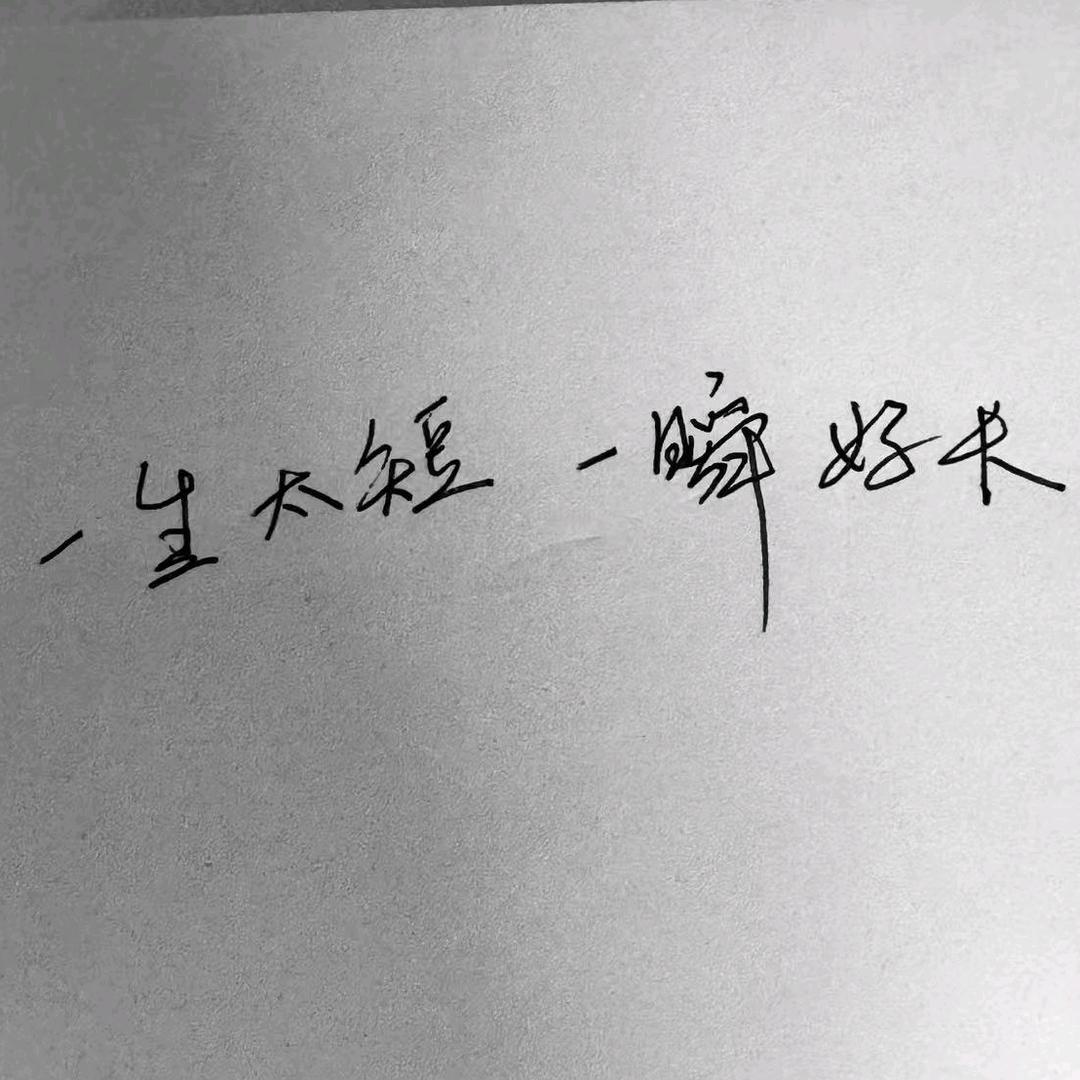 一生太短 一瞬好长